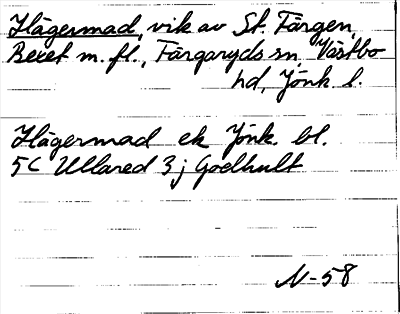 Hägermad, vik av St. Färgen,
m. fl., Färgaryds sn, Västbo
hd, Jönk. l.
Hägermad ek Jönk. bl.
5C Ullared 3j Goelhult
N-58